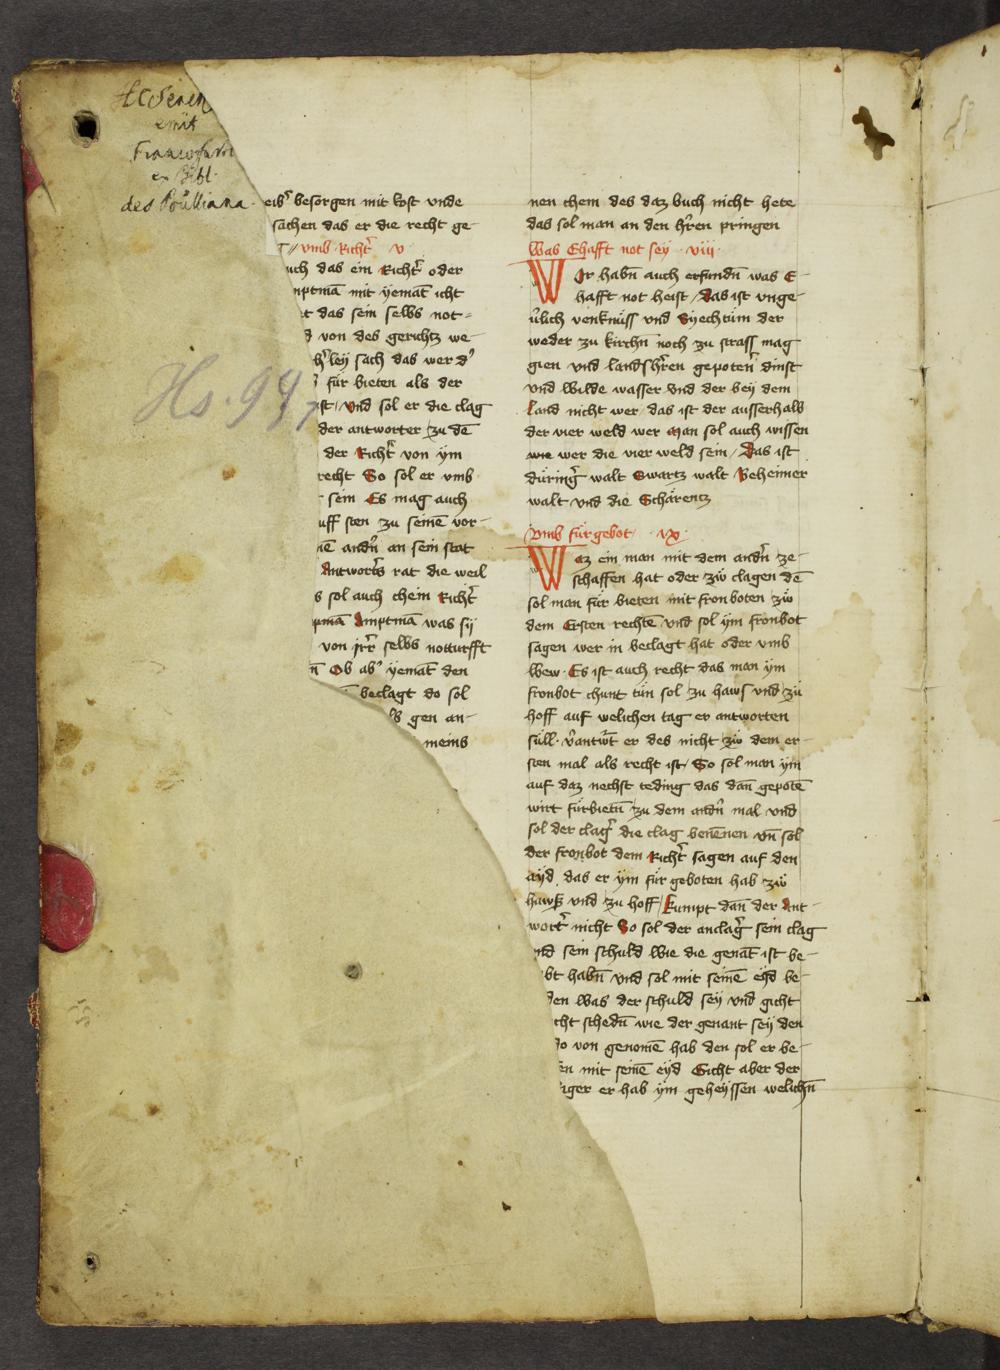 emit
ex Bibl.
besorgen mit kost vnde
sachen das er die recht ge-
vmb Richt̄ v
das ein Richt̄ oder
mit yemāt icht
das sein selbs not-
von des gerichtz we-
sach das wer d'
für bieten als der
vnd sol er die clag
der antworter zu dē
der Richt̄ von ym
recht So sol er vmb
sein Es mag auch
sten zu seinē vor-
andn̄ an sein stat
rat die weil
sol auch chein Richt̄
Amptmā was sy
von selbs notturfft
Ob ab' yemāt den
beclagt do sol
gen an-
meins
Hs. 94
nen chem des daz buch nicht hete
das sol man an den hr̄en pringen
Was Ehafft not sey · viii ·
Wir habn̄ auch erfundn̄ was E-
hafft not heist / das ist vnge-
v̄lich venknüss vnd Syechtum der
weder zu kirchn̄ noch zu strass mag
gien vnd landshr̄en gepoten̄ dinst
vnd Wilde wasser vnd der bey dem
land nicht wer / das ist der ausserhalb
der vier weld wer Man sol auch wissen
wie wer die vier weld sein / Das ist
dürinḡ walt Swartz walt Beheimer
walt vnd die Schärentz
Vmb fürgebot · ix ·
Wez ein man mit dem andn̄ ze-
schaffen hat oder zů clagen dē
sol man für bieten mit fronboten zů
dem Ersten rechtē vnd sol ym fronbot
sagen wer in beclagt hat oder vmb
wew · Es ist auch recht das man ym
fronbot chunt tün sol zu haws vnd zü
hoff auf welichen tag er antworten
süll · v̄antw̄t er des nicht zů dem er-
sten mal als recht ist / So sol man ym
auf daz nechst teding das dan̄ gepotē
wirt fürbietn̄ zu dem andn̄ mal vnd
sol der claḡ die clag benēnen vn̄ sol
der fronbot dem Richt̄ sagen auf den
ayd das er ym für geboten hab zů
haws vnd zu hoff / kumpt dan̄ der Ant-
wort̄ nicht So sol der anclaḡ sein clag
nd sein schuld Wie die genāt ist be-
bt habn̄ vnd sol mit seinē eyd be-
den Was der schuld sey vnd gicht
cht schedn̄ wie der genant sey den
o von genomē hab den sol er be-
en mit seinē eyd Gicht aber der
ger er hab ym geheyssen welichn̄